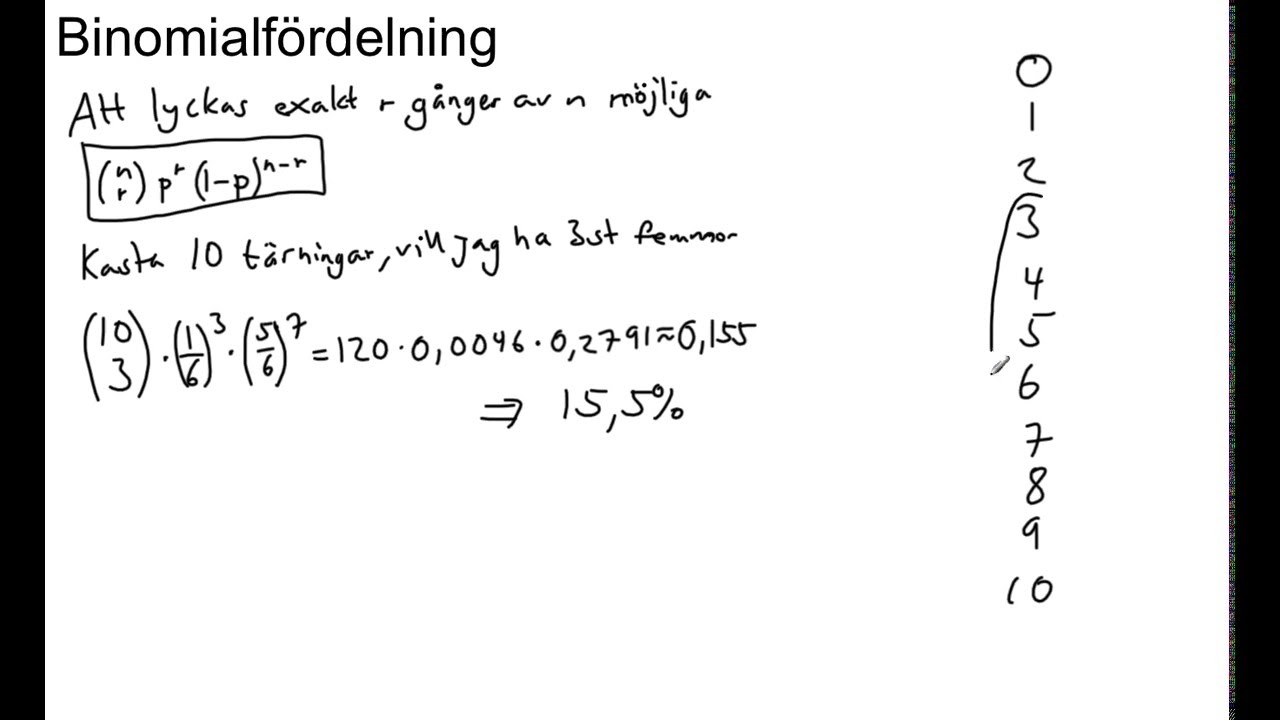 Binomialfördelning
Att lyckas exakt r gånger av n möjliga
(n r) p^r (1-p)^{n-r}
Kasta 10 tärningar, vill jag ha 3st femmor
(10 3) · (1/6)^3 · (5/6)^7 = 120 · 0,0046 · 0,2791 ≈ 0,155
⇒ 15,5%
0
1
2
3
4
5
6
7
8
9
10